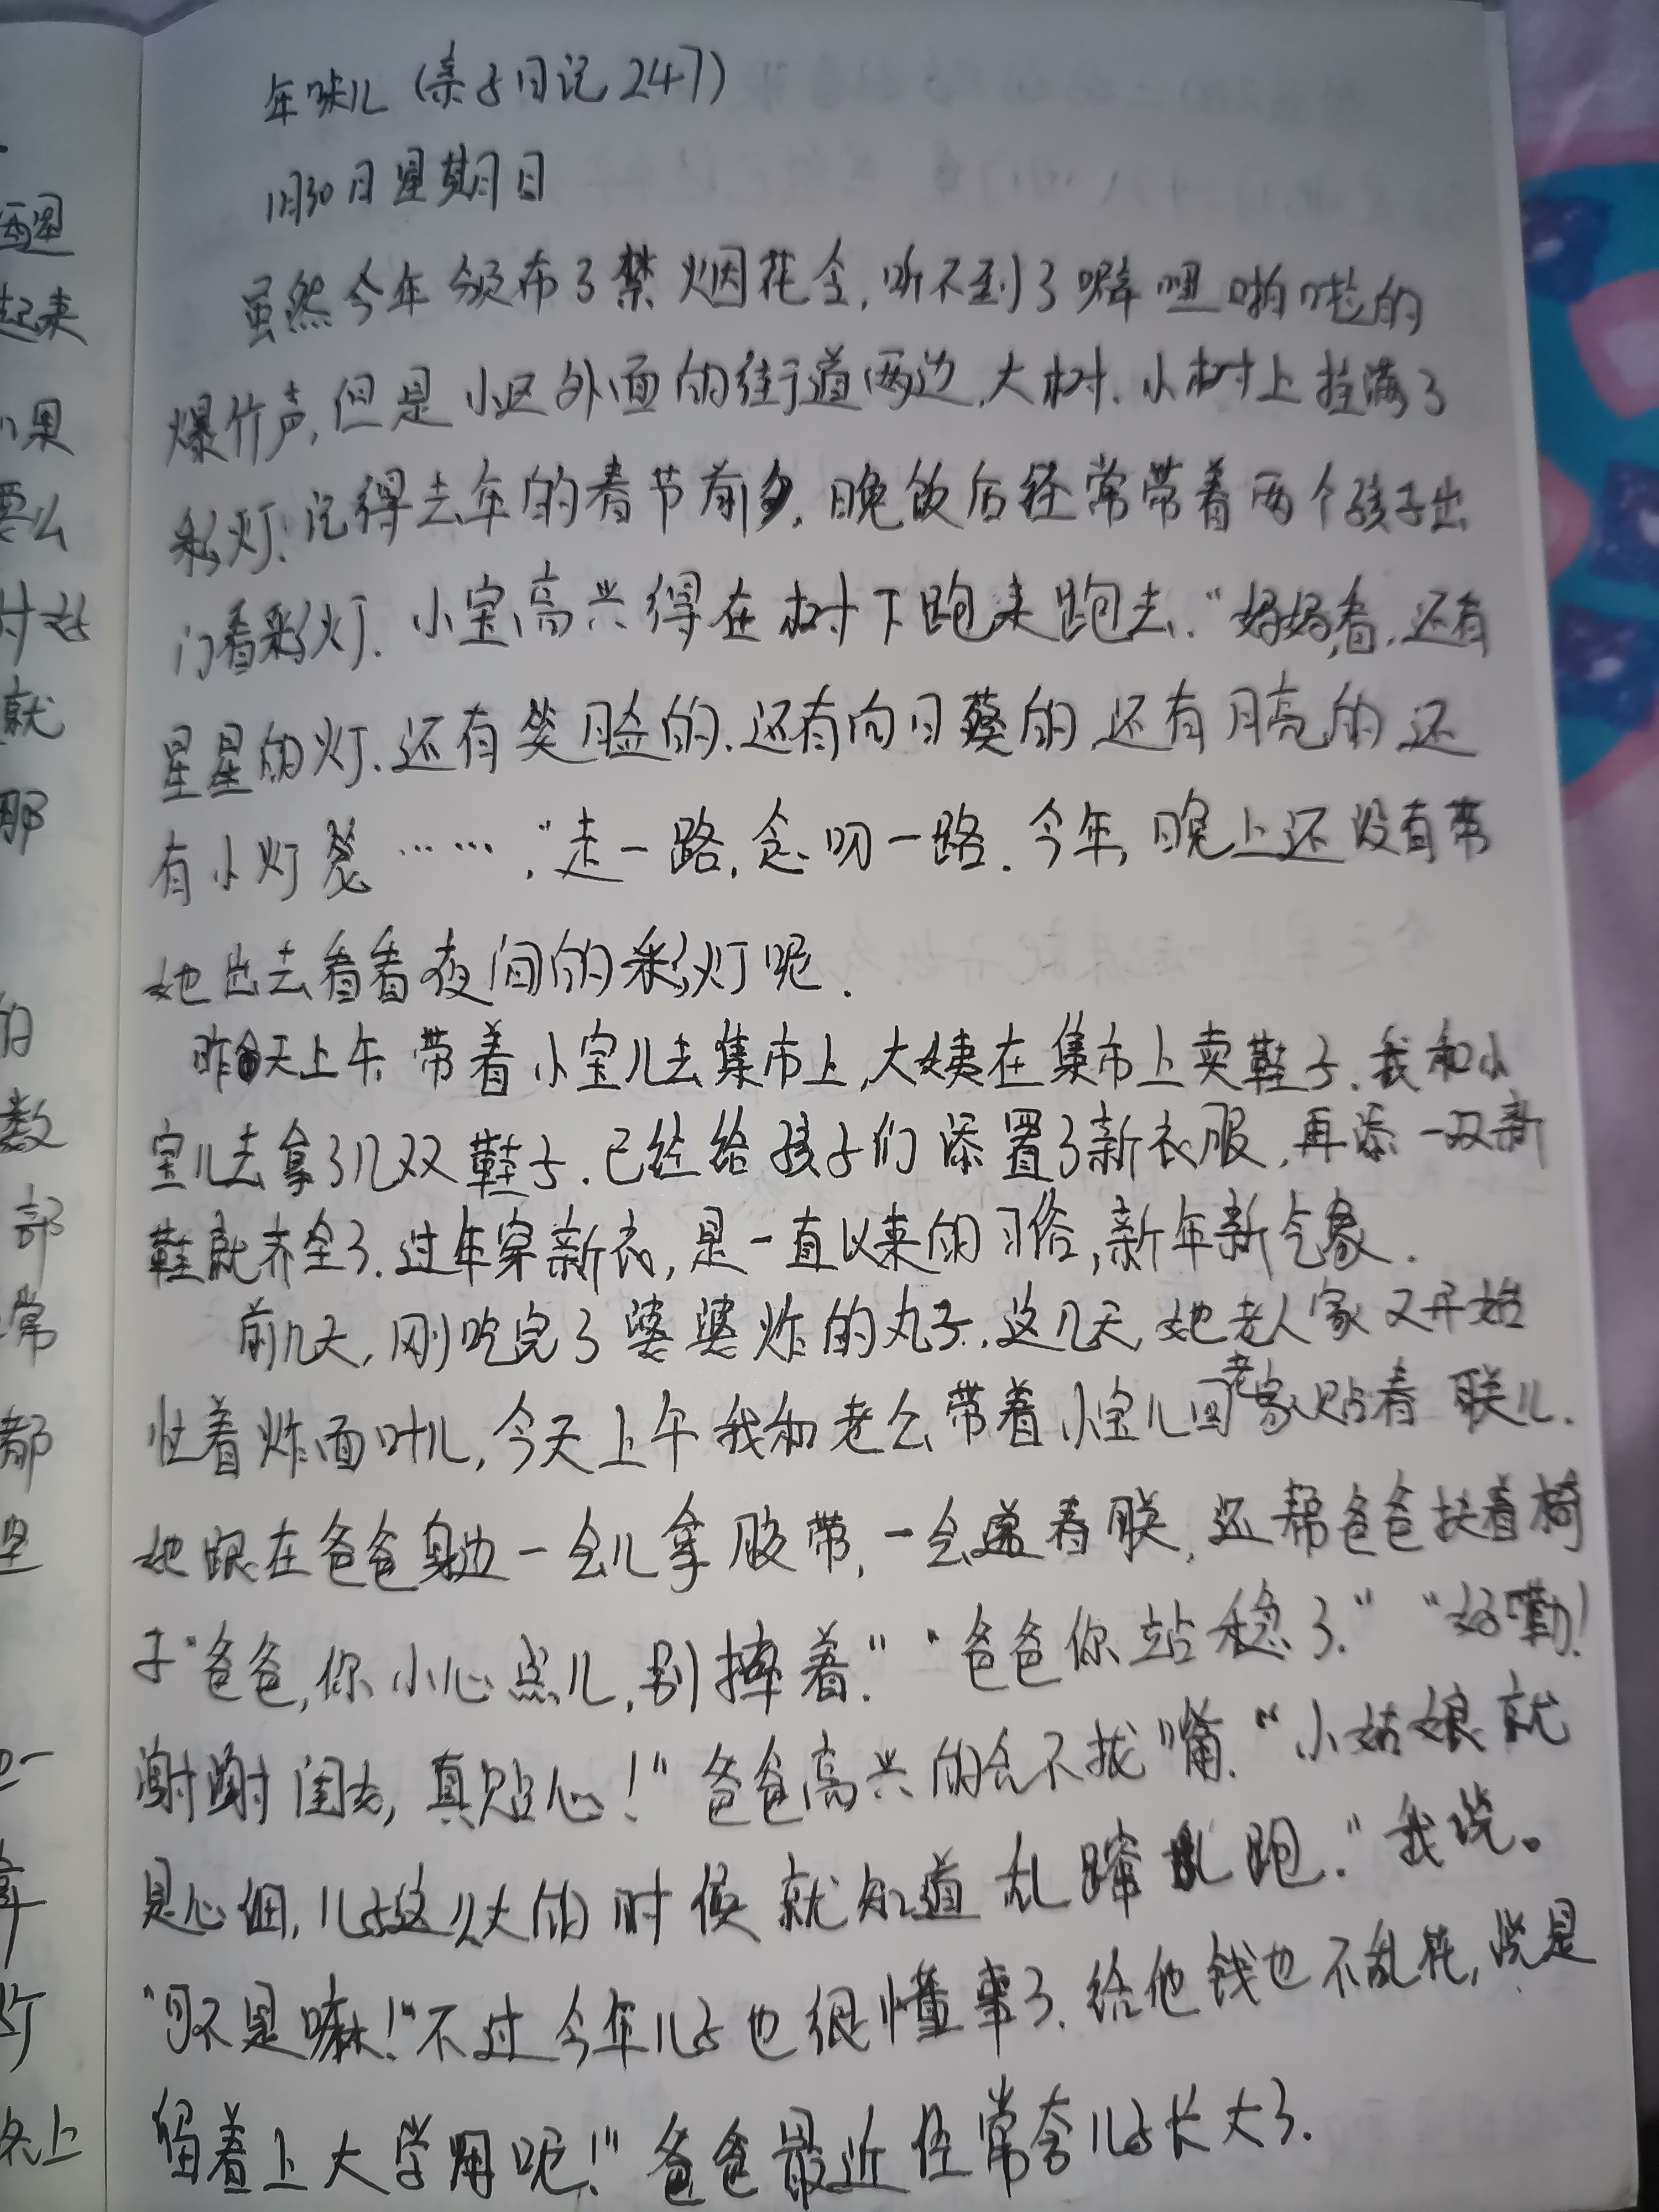 年味儿（亲子日记247）
1月30日星期日
虽然今年颁布了禁烟花令，听不到了噼里啪啦的
爆竹声，但是小区外面的街道两边，大树、小树上挂满了
彩灯。记得去年的春节前夕，晚饭后经常带着两个孩子出
门看彩灯．小宝高兴得在树下跑来跑去．“妈妈，看，还有
星星的灯．还有笑脸的．还有向日葵的，还有月亮的，还
有小灯笼……，”走一路，念叨一路．今年，晚上还没有带
她出去看看夜间的彩灯呢．
昨天上午 带着小宝儿去集市上，大姨在集市上卖鞋子．我和小
宝儿去拿了几双鞋子．已经给孩子们添置了新衣服，再添一双新
鞋就齐全了．过年穿新衣，是一直以来的习俗，新年新气象．
前几天，刚吃完了婆婆炸的丸子．这几天，她老人家又开始
忙着炸面叶儿，今天上午我和老公带着小宝儿回老家贴春联儿．
她跟在爸爸身边一会儿拿胶带，一会递春联，还帮爸爸扶着椅
子“爸爸，你小心点儿，别摔着．”“爸爸你站稳了．”“好嘞！
谢谢闺女，真贴心！”爸爸高兴的合不拢嘴．“小姑娘就
是心细，儿子这么大的时候就知道乱蹿乱跑．”我说。
“可不是嘛！”不过今年儿子也很懂事了．给他钱也不乱花，说是
留着上大学用呢！”爸爸最近经常夸儿子长大了．
醒
起来
果
要么
就
那
的
数
部
常
都
名上